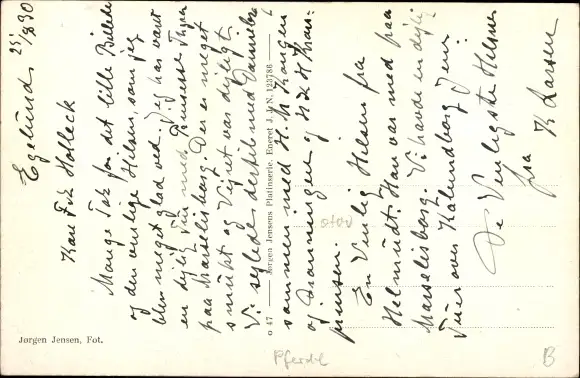 Egelund 25/8 30
Kære Frk Holleck
Mange Tak for det lille Billede
og den venlige Hilsen, som jeg
blev meget glad ved. Jeg har været
en dejlig Tur med Prinsesse Thyra
paa Marselisborg. Der er meget
smukt og Vejret var dejligt.
Vi sejlede dertil med Dannebro
sammen med H. M Kongen
og Dronningen og H K H Kron-
prinsen.
En Venlig Hilsen fra
Helmudt. Han var med paa
Marselisborg. Vi havde en dejlig
Tur over Kalundborg
De Venligste Hilsner
fra K Larsen
o 47 — Jørgen Jensens Platinserie. Eneret J. J. N. 123786 —
Jørgen Jensen, Fot.
Pferde
B